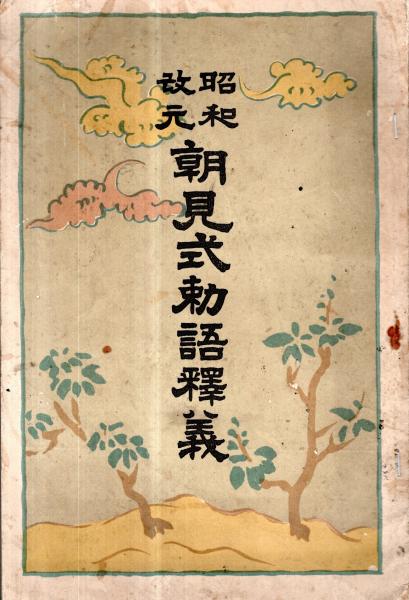 昭和
改元
朝見式勅語釋義